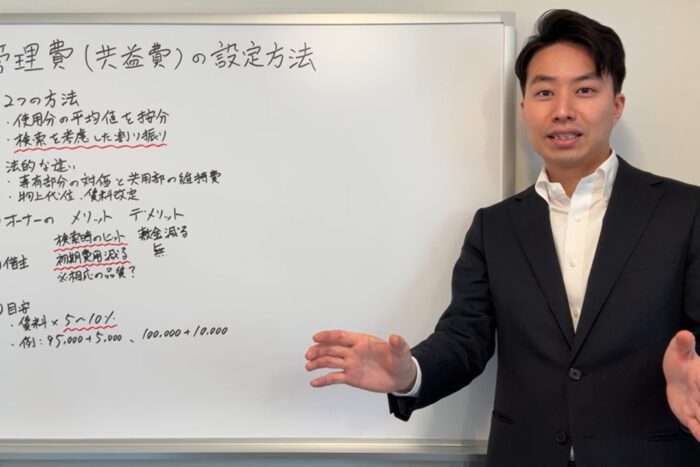 管理費(共益費)の設定方法
2つの方法
・使用分の平均値を按分
・検索を考慮した割り振り
法的な違い
・専有部分の対価と共用部の維持費
・物上代位、賃料改定
オーナーの メリット デメリット
検索時のヒット 敷金減る
借主 初期費用減る 無
※相応の品質?
目安
・賃料×5〜10%
・例:95,000+5,000、100,000+10,000